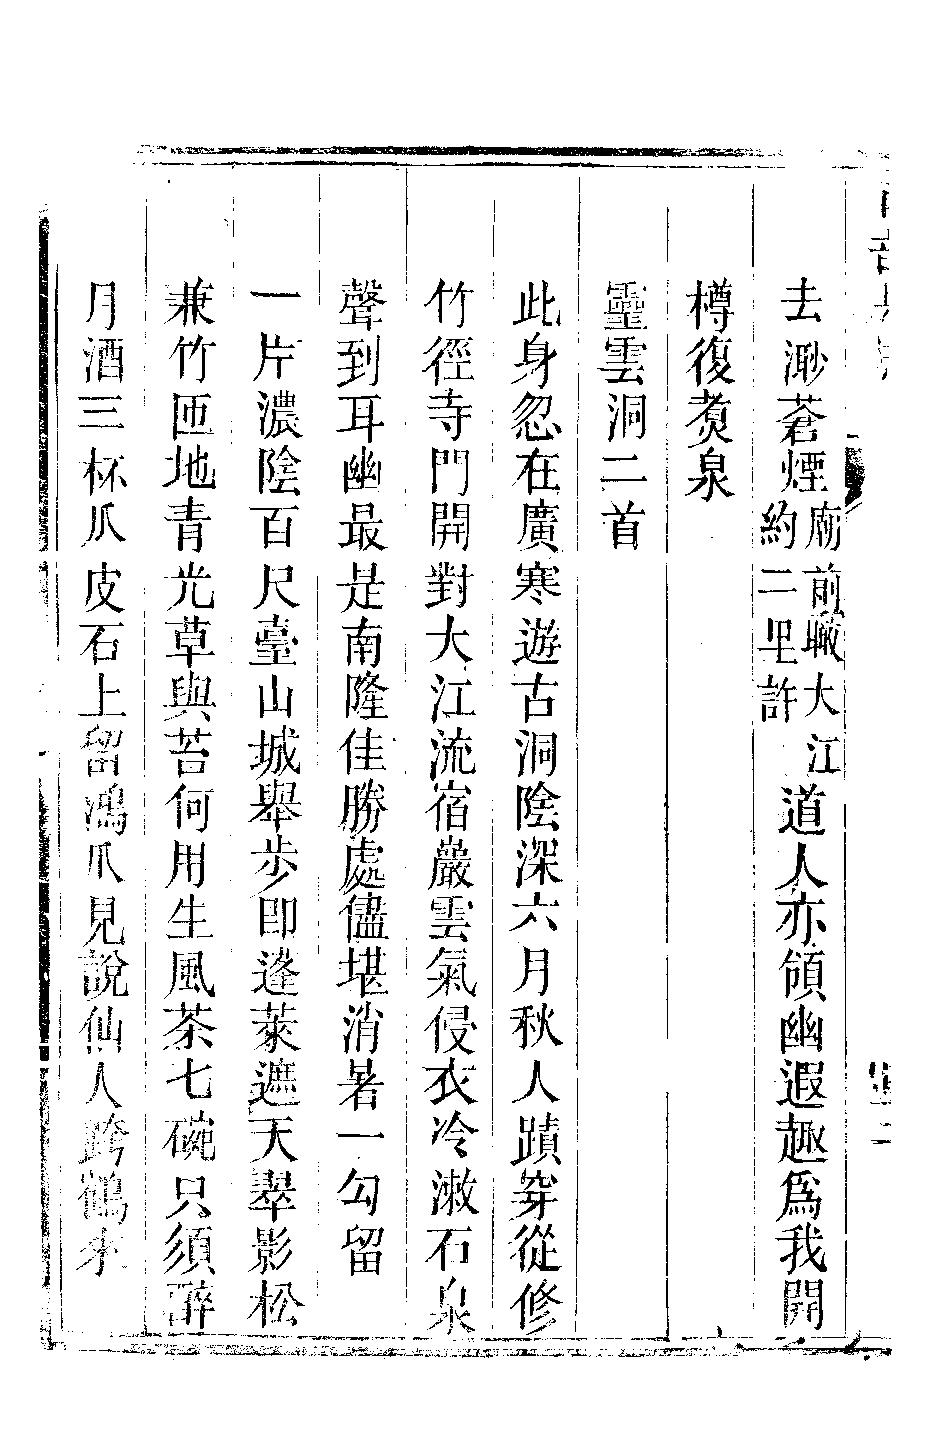 去渺蒼煙廟前瞰大江約二里許道人亦領幽遐趣爲我開
樽復煑泉
靈雲洞二首
此身忽在廣寒遊古洞陰深六月秋人蹟穿從修
竹徑寺門開對大江流宿巖雲氣侵衣冷漱石泉
聲到耳幽最是南隆佳勝處儘堪消暑一勾留
一片濃陰百尺臺山城舉步卽蓬萊遮天翠影松
兼竹匝地青光草與苔何用生風茶七碗只須醉
月酒三杯瓜皮石上留鴻爪見說仙人跨鶴來